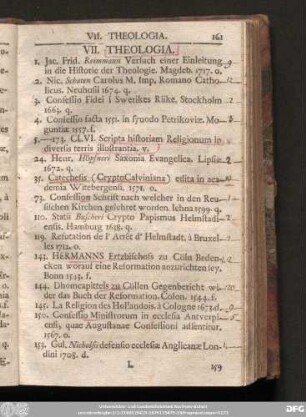 VII. THEOLOGIA. 161
VII. THEOLOGIA.
1. Jac. Frid. Reimmann Versuch einer Einleitung
in die Historie der Theologie. Magdeb. 1717. o.
2. Nic. Schaten Carolus M. Imp. Romano Catho-
licus. Neuhusii 1674. q.
3. Confessio Fidei i Swerikes Riike, Stockholm
1663. q.
4. Confessio facta 1551. in synodo Petrikoviæ. Mo-
guntiæ 1557. f.
5.--175. CLVI. Scripta historiam Religionum in
diversis terris illustrantia. v.
24. Henr. Höpfneri Saxonia Evangelica. Lipsiæ
1672. q.
35. Catechesis (CryptoCalviniana) edita in aca-
demia Witebergensi. 1571. o.
73. Confession Schrift nach welcher in den Reu-
sischen Kirchen gelehret worden. Iehna 1599. q.
110. Statii Buscheri Crypto Papismus Helmstadi-
ensis. Hamburg 1638. q.
119. Refutation de l' Arrêt d' Helmstadt, à Bruxel-
les 1712. o.
143. HERMANNS Ertzbischofs zu Cöln Beden-
cken worauf eine Reformation anzurichten sey.
Bonn 1543. f.
144. Dhomcapittels zu Cöllen Gegenbericht wi-
der das Buch der Reformation. Colon. 1544. f.
145. La Religion des Hollandois. à Cologne 1673. d.
150. Confessio Ministrorum in ecclesia Antverpi-
ensi, quæ Augustanæ Confessioni adsentitur,
1567. o.
153. Gul. Nicholsii defensio ecclesiæ Anglicanæ Lon-
dini 1708. d.
L 159